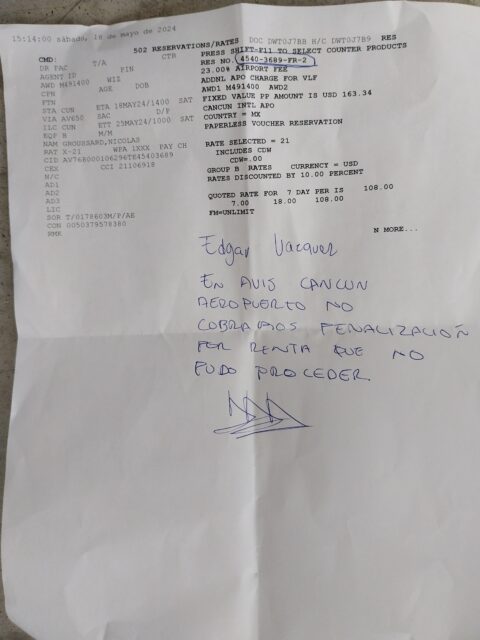 15:14:00 sábado, 18 de mayo de 2024 DOC DWT0J7BB H/C DWT0J7B9 RES
502 RESERVATIONS/RATES PRESS SHIFT-F11 TO SELECT COUNTER PRODUCTS
CMD: CTR RES NO. 4540-3689-FR-2
DR PAC T/A 23.00% AIRPORT FEE
AGENT ID PIN ADDNL APO CHARGE FOR VLF
AWD M491400 WIZ AWD1 M491400 AWD2
CPN AGE DOB FIXED VALUE PP AMOUNT IS USD 163.34
FTN CANCUN INTL APO
STA CUN ETA 18MAY24/1400 SAT COUNTRY = MX
VIA AV650 SAC D/P PAPERLESS VOUCHER RESERVATION
ILC CUN ETT 25MAY24/1000 SAT
EQP B M/M RATE SELECTED = 21
NAM GROUSSARD,NICOLAS INCLUDES CDW
RAT X-21 WPA 1XXX PAY CH CDW=.00
CID AV768000106296TE45403689 GROUP B RATES CURRENCY = USD
CEX CCI 21106918 RATES DISCOUNTED BY 10.00 PERCENT
N/C
AD1 QUOTED RATE FOR 7 DAY PER IS 108.00
AD2 7.00 18.00 108.00
AD3 FM=UNLIMIT
LIC
SOR T/0178603M/P/AE
CON 0050379578380 N MORE...
RMK
Edgar Vacquez
EN AVIS CANCUN
AEROPUERTO NO
COBRAMOS PENALIZACIÓN
POR RENTA QUE NO
PUDO PROCEDER